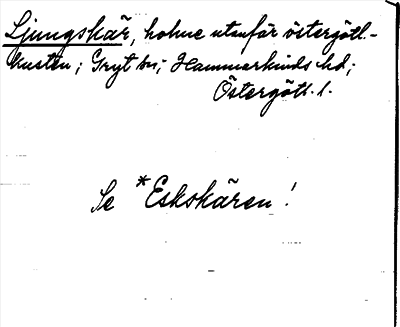 Ljungskär, holme utanför östergötl.-
kusten; Gryt sn; Hammarkinds hd;
Östergötl. l.
Se *Eskskären!